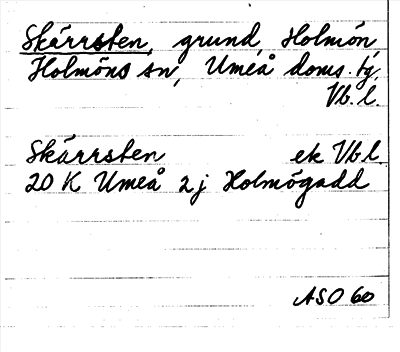 Skärrsten, grund, Holmön
Holmöns sn, Umeå doms. tg,
Vb. l.
Skärrsten ek Vb l.
20 K Umeå 2 j Holmögadd
ASO 60